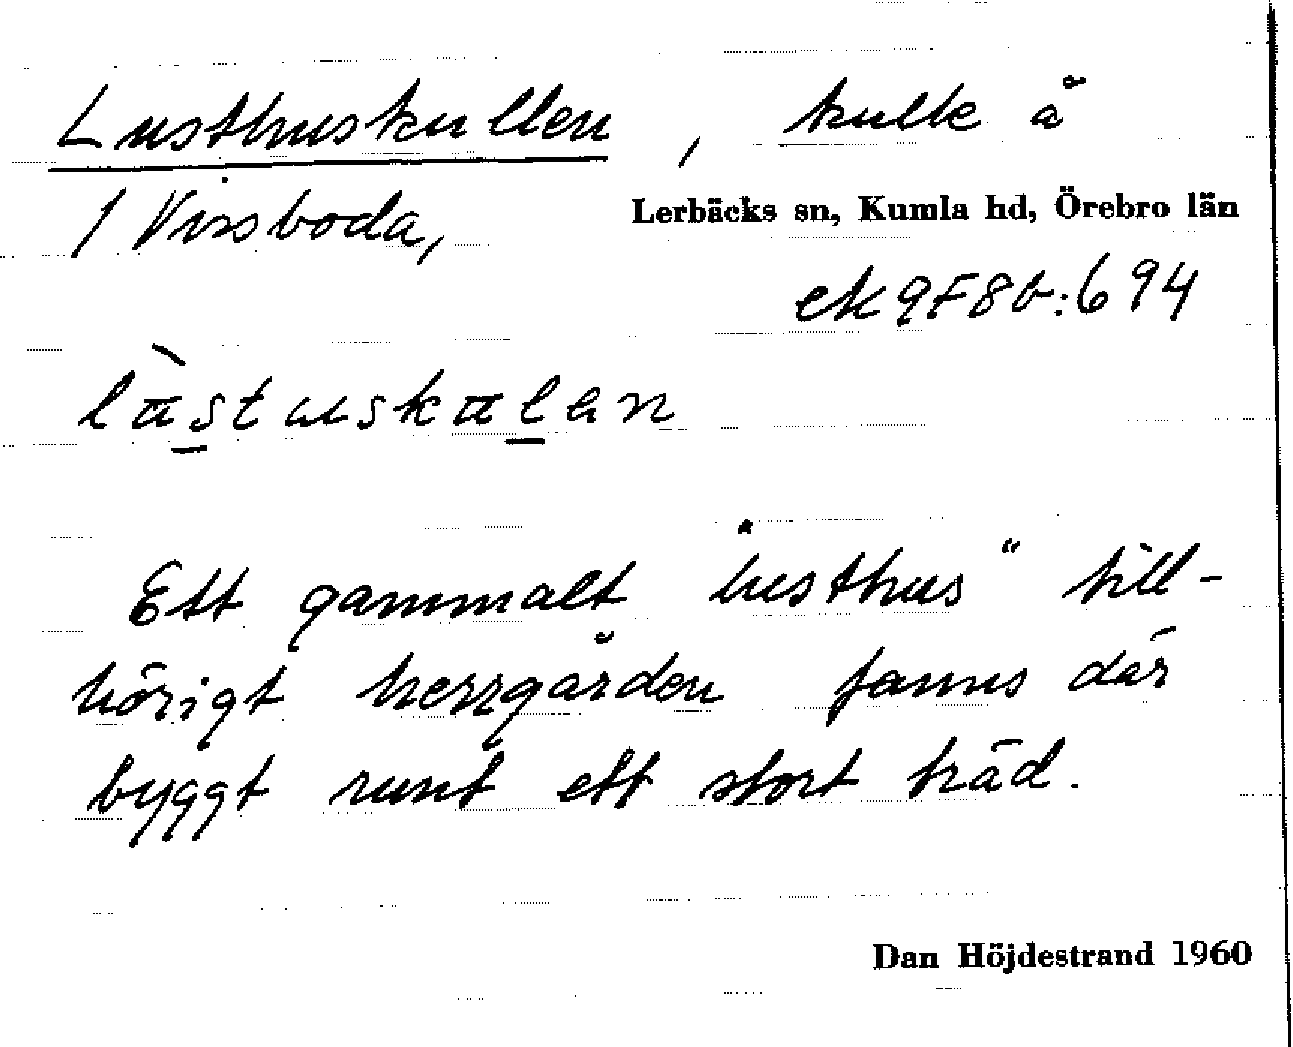 Lusthuskullen, kulle å
/ Vissboda, Lerbäcks sn, Kumla hd, Örebro län
ek 9F8b:694
Ett gammalt "lusthus" till-
hörigt herrgården fanns där
byggt runt ett stort träd.
Dan Höjdestrand 1960